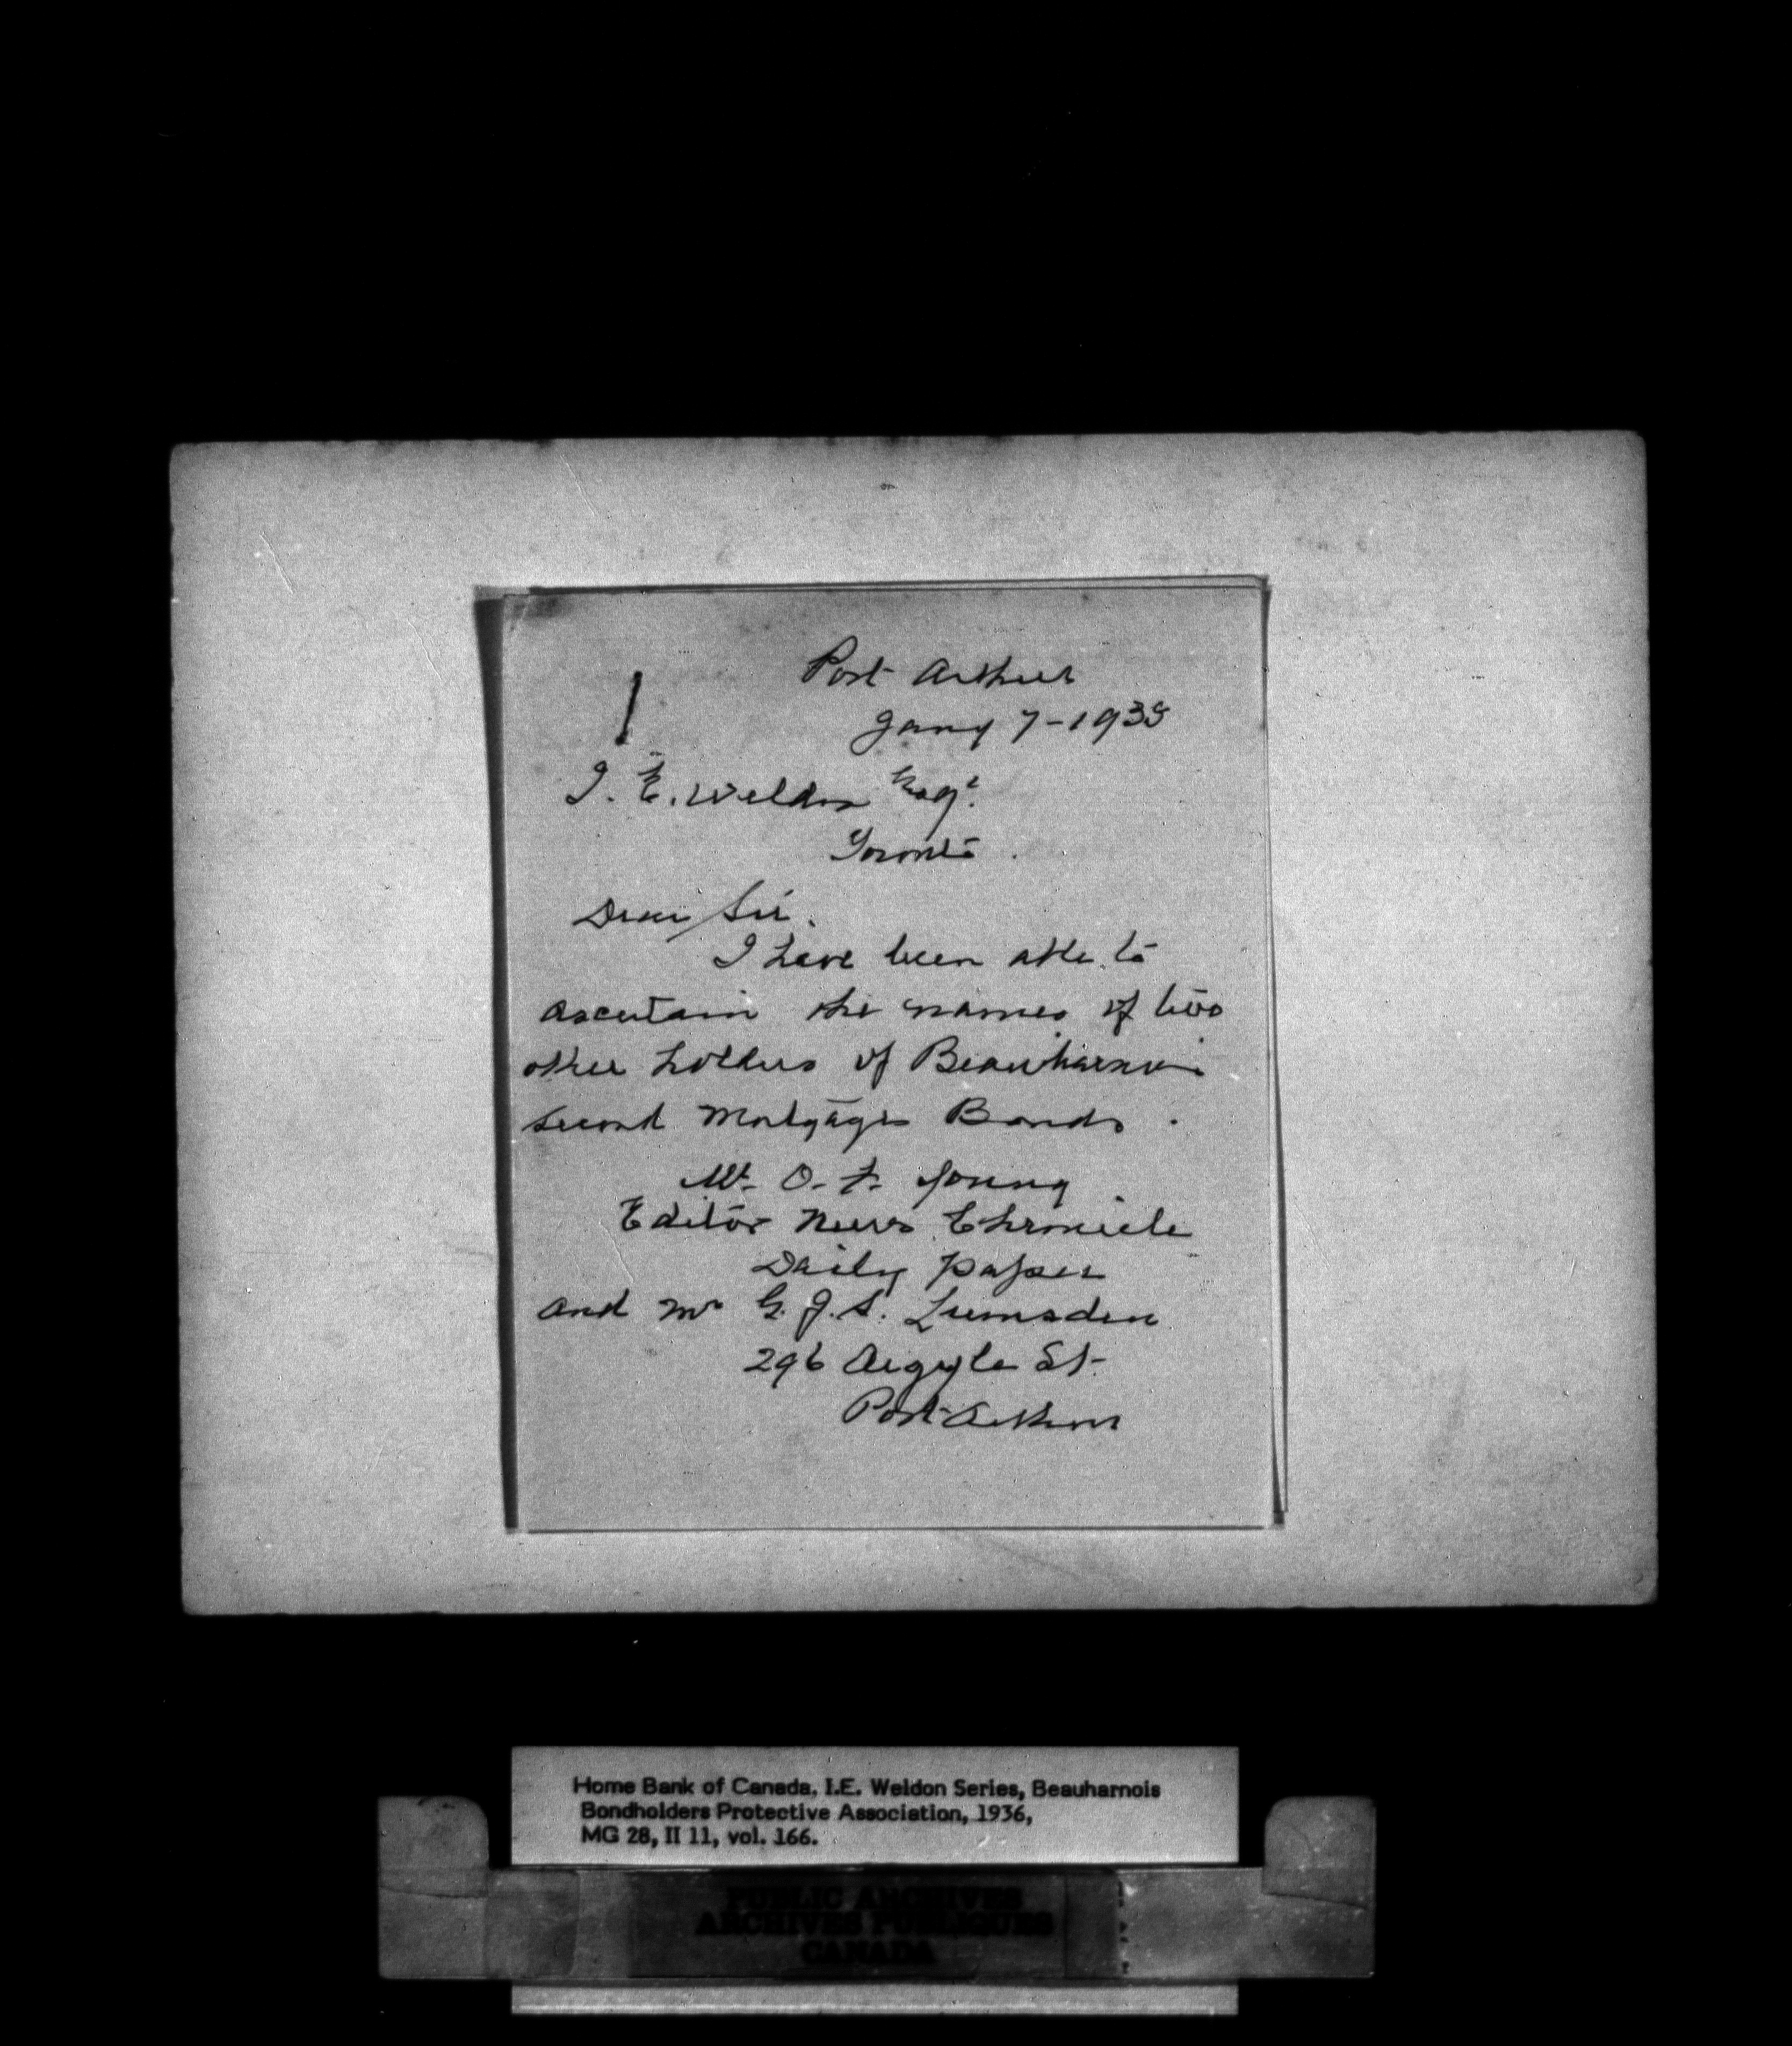 Port Arthur
Jany 7-1935
I. E. Weldon Esqr.
Toronto.
Dear Sir.
I have been able to
ascertain the names of two
other holders of Beauharnois
second Mortgage Bonds.
Mr. O. F. Young
Editor News Chronicle
Daily paper
and Mr G. J. S. Lumsden
296 Argyle St-
Port Arthur
Home Bank of Canada, I.E. Weldon Series, Beauharnois
Bondholders Protective Association, 1936,
MG 28, II 11, vol. 166.
PUBLIC ARCHIVES
ARCHIVES PUBLIQUES
CANADA